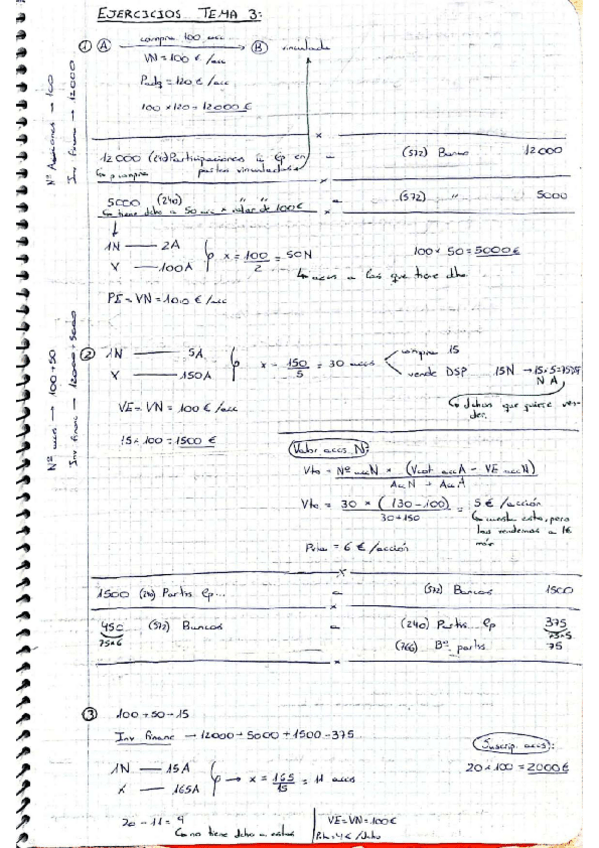 EJERCICIOS TEMA 3:
① Ⓐ compra 100 acc → Ⓑ vinculada
VN = 100 € /acc
Padq = 120 € /acc
100 x 120 = 12000 €
Nº Acciones → 100
Inv financ → 12000
12000 (240) Participaciones a lp en partes vinculadas a (572) Banco 12000
5000 (240) " " a (572) " 5000
↳ tiene dcho a 50 acc x valor de 100€
1N — 2A
X — 100A
x = 100/2 = 50N
↳ accs a las que tiene dcho
100 x 50 = 5000€
PE = VN = 100 € /acc
Nº accs → 100+50
Inv financ → 12000+5000
② 1N — 5A
X — 150A
x = 150/5 = 30 accs
compra 15
vende DSP 15N → 15x5=75DSP
N A
↳ dchos que quiere vender.
VE = VN = 100 € /acc
15 x 100 = 1500 €
Valor accs Nª
Vto = Nº acc N x (Vcot acc A - VE acc N) / Acc N + Acc A
Vto = 30 x (130-100) / 30+150 = 5 € /acción
↳ cuesta esto, pero las vendemos a 1€ más
= 6 € /acción
1500 (240) Partks lp... a (572) Bancos 1500
450 (572) Bancos a (240) Partks lp 375
75x6
75x5
(766) Bº partks 75
③ 100+50+15
Inv financ → 12000+5000+1500-375
1N — 15A
X — 165A
→ x = 165/15 = 11 accs
Suscrip. accs:
20 x 100 = 2000€
20 - 11 = 9
↳ no tiene dcho a estas
VE = VN = 100€
= 4€ /dcho